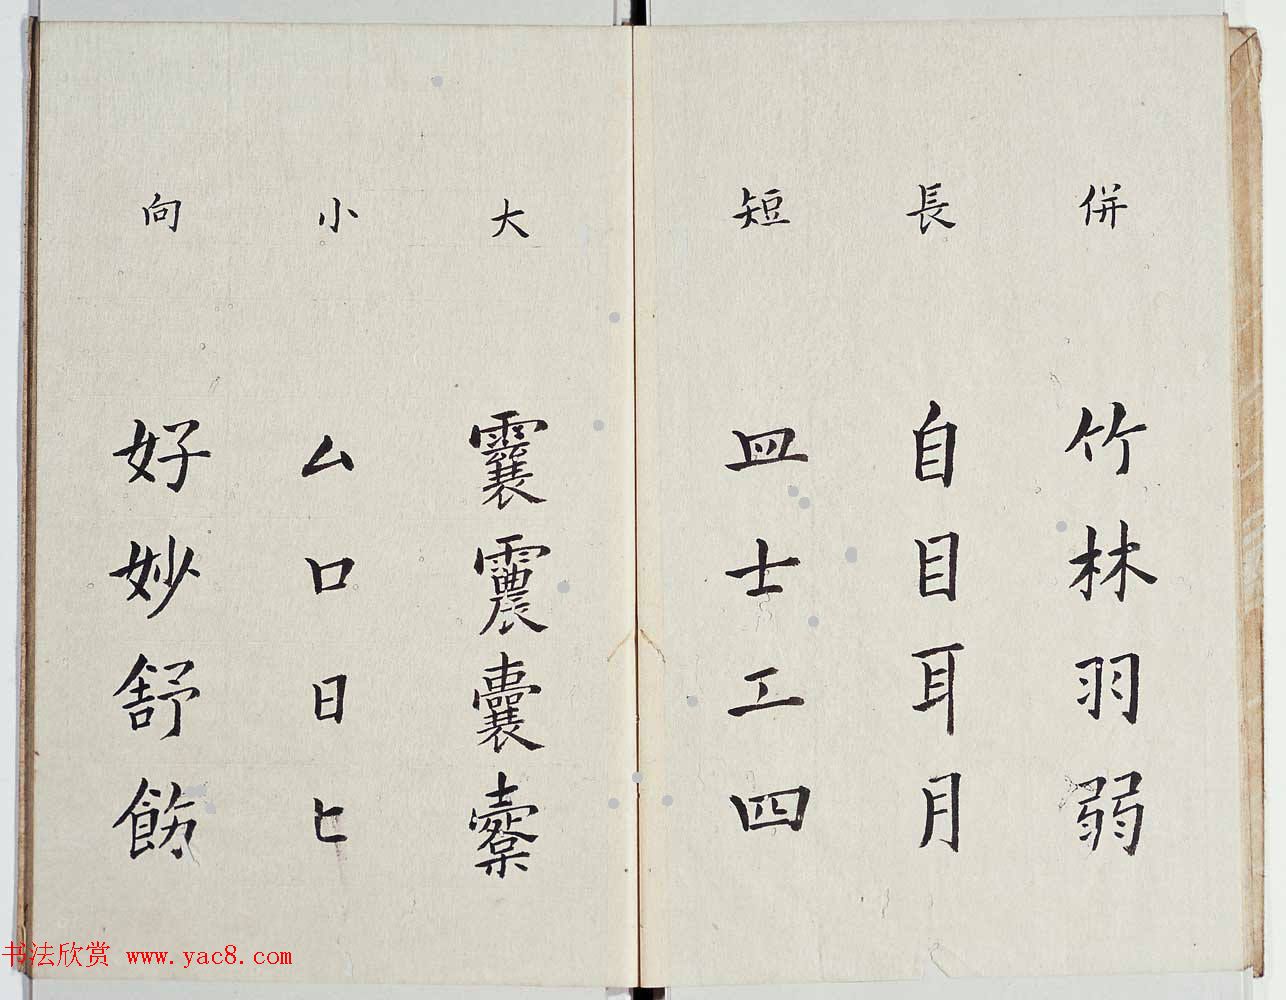 併 竹林羽弱
長 自目耳月
短 皿士工四
大 囊
小 厶口日匕
向 好妙舒
书法欣赏 www.yac8.com